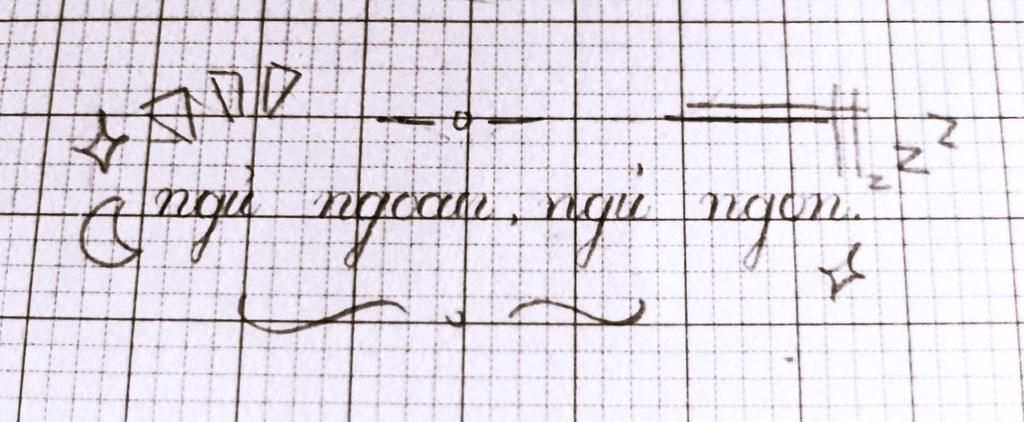 z z z
ngủ ngoan, ngủ ngon.